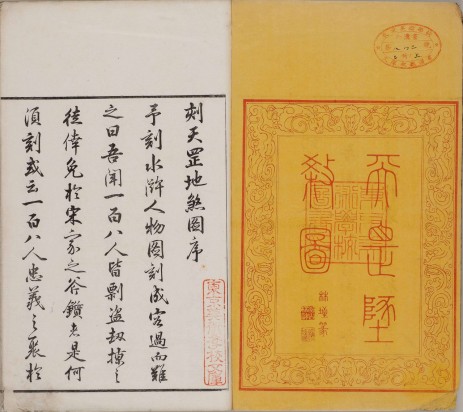 天罡墬
煞圖
刻天罡地煞圖序
予刻水滸人物圖刻成客過而難
之曰吾聞一百八人皆剽盜劫掠之
徒倖免於宋家之斧鑕者是何
須刻或云一百八人忠義之聚於